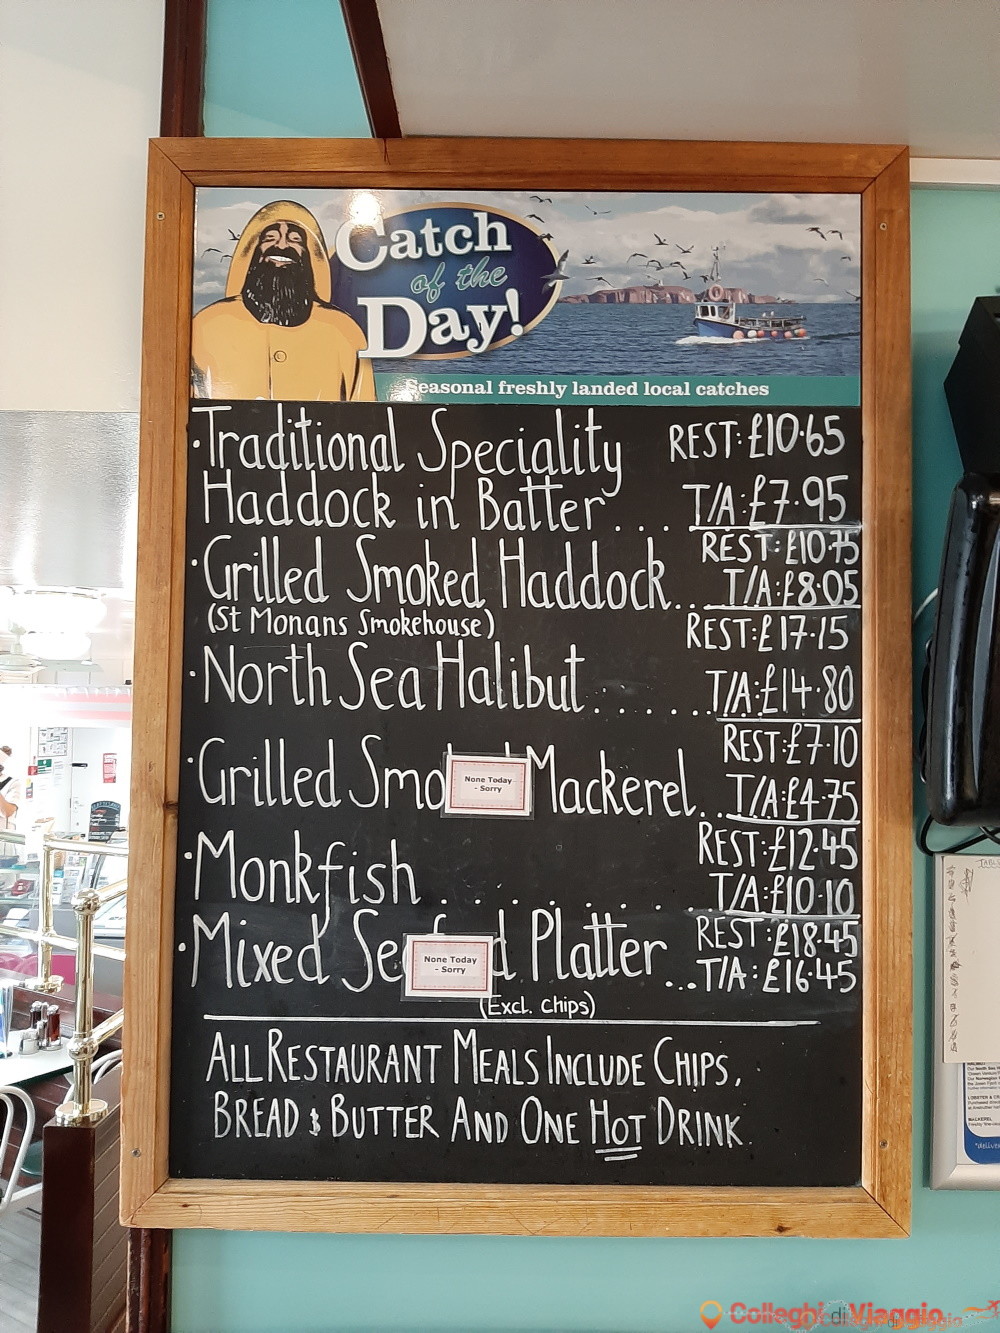 Catch
of the
Day!
Seasonal freshly landed local catches
·Traditional Speciality REST:£10·65
Haddock in Batter... T/A:£7·95
REST:£10·75
·Grilled Smoked Haddock.. T/A:£8·05
(St Monans Smokehouse)
REST:£17·15
·North Sea Halibut...... T/A:£14·80
REST:£7·10
·Grilled Smo Mackerel.. T/A:£4·75
None Today
- Sorry
REST:£12·45
·Monkfish......... T/A:£10·10
REST:£18·45
·Mixed Se d Platter ...T/A:£16·45
None Today
- Sorry
(Excl. Chips)
ALL RESTAURANT MEALS INCLUDE CHIPS,
BREAD & BUTTER AND ONE HOT DRINK.
LOBSTER & CR
MACKEREL
Colleghi di Viaggio